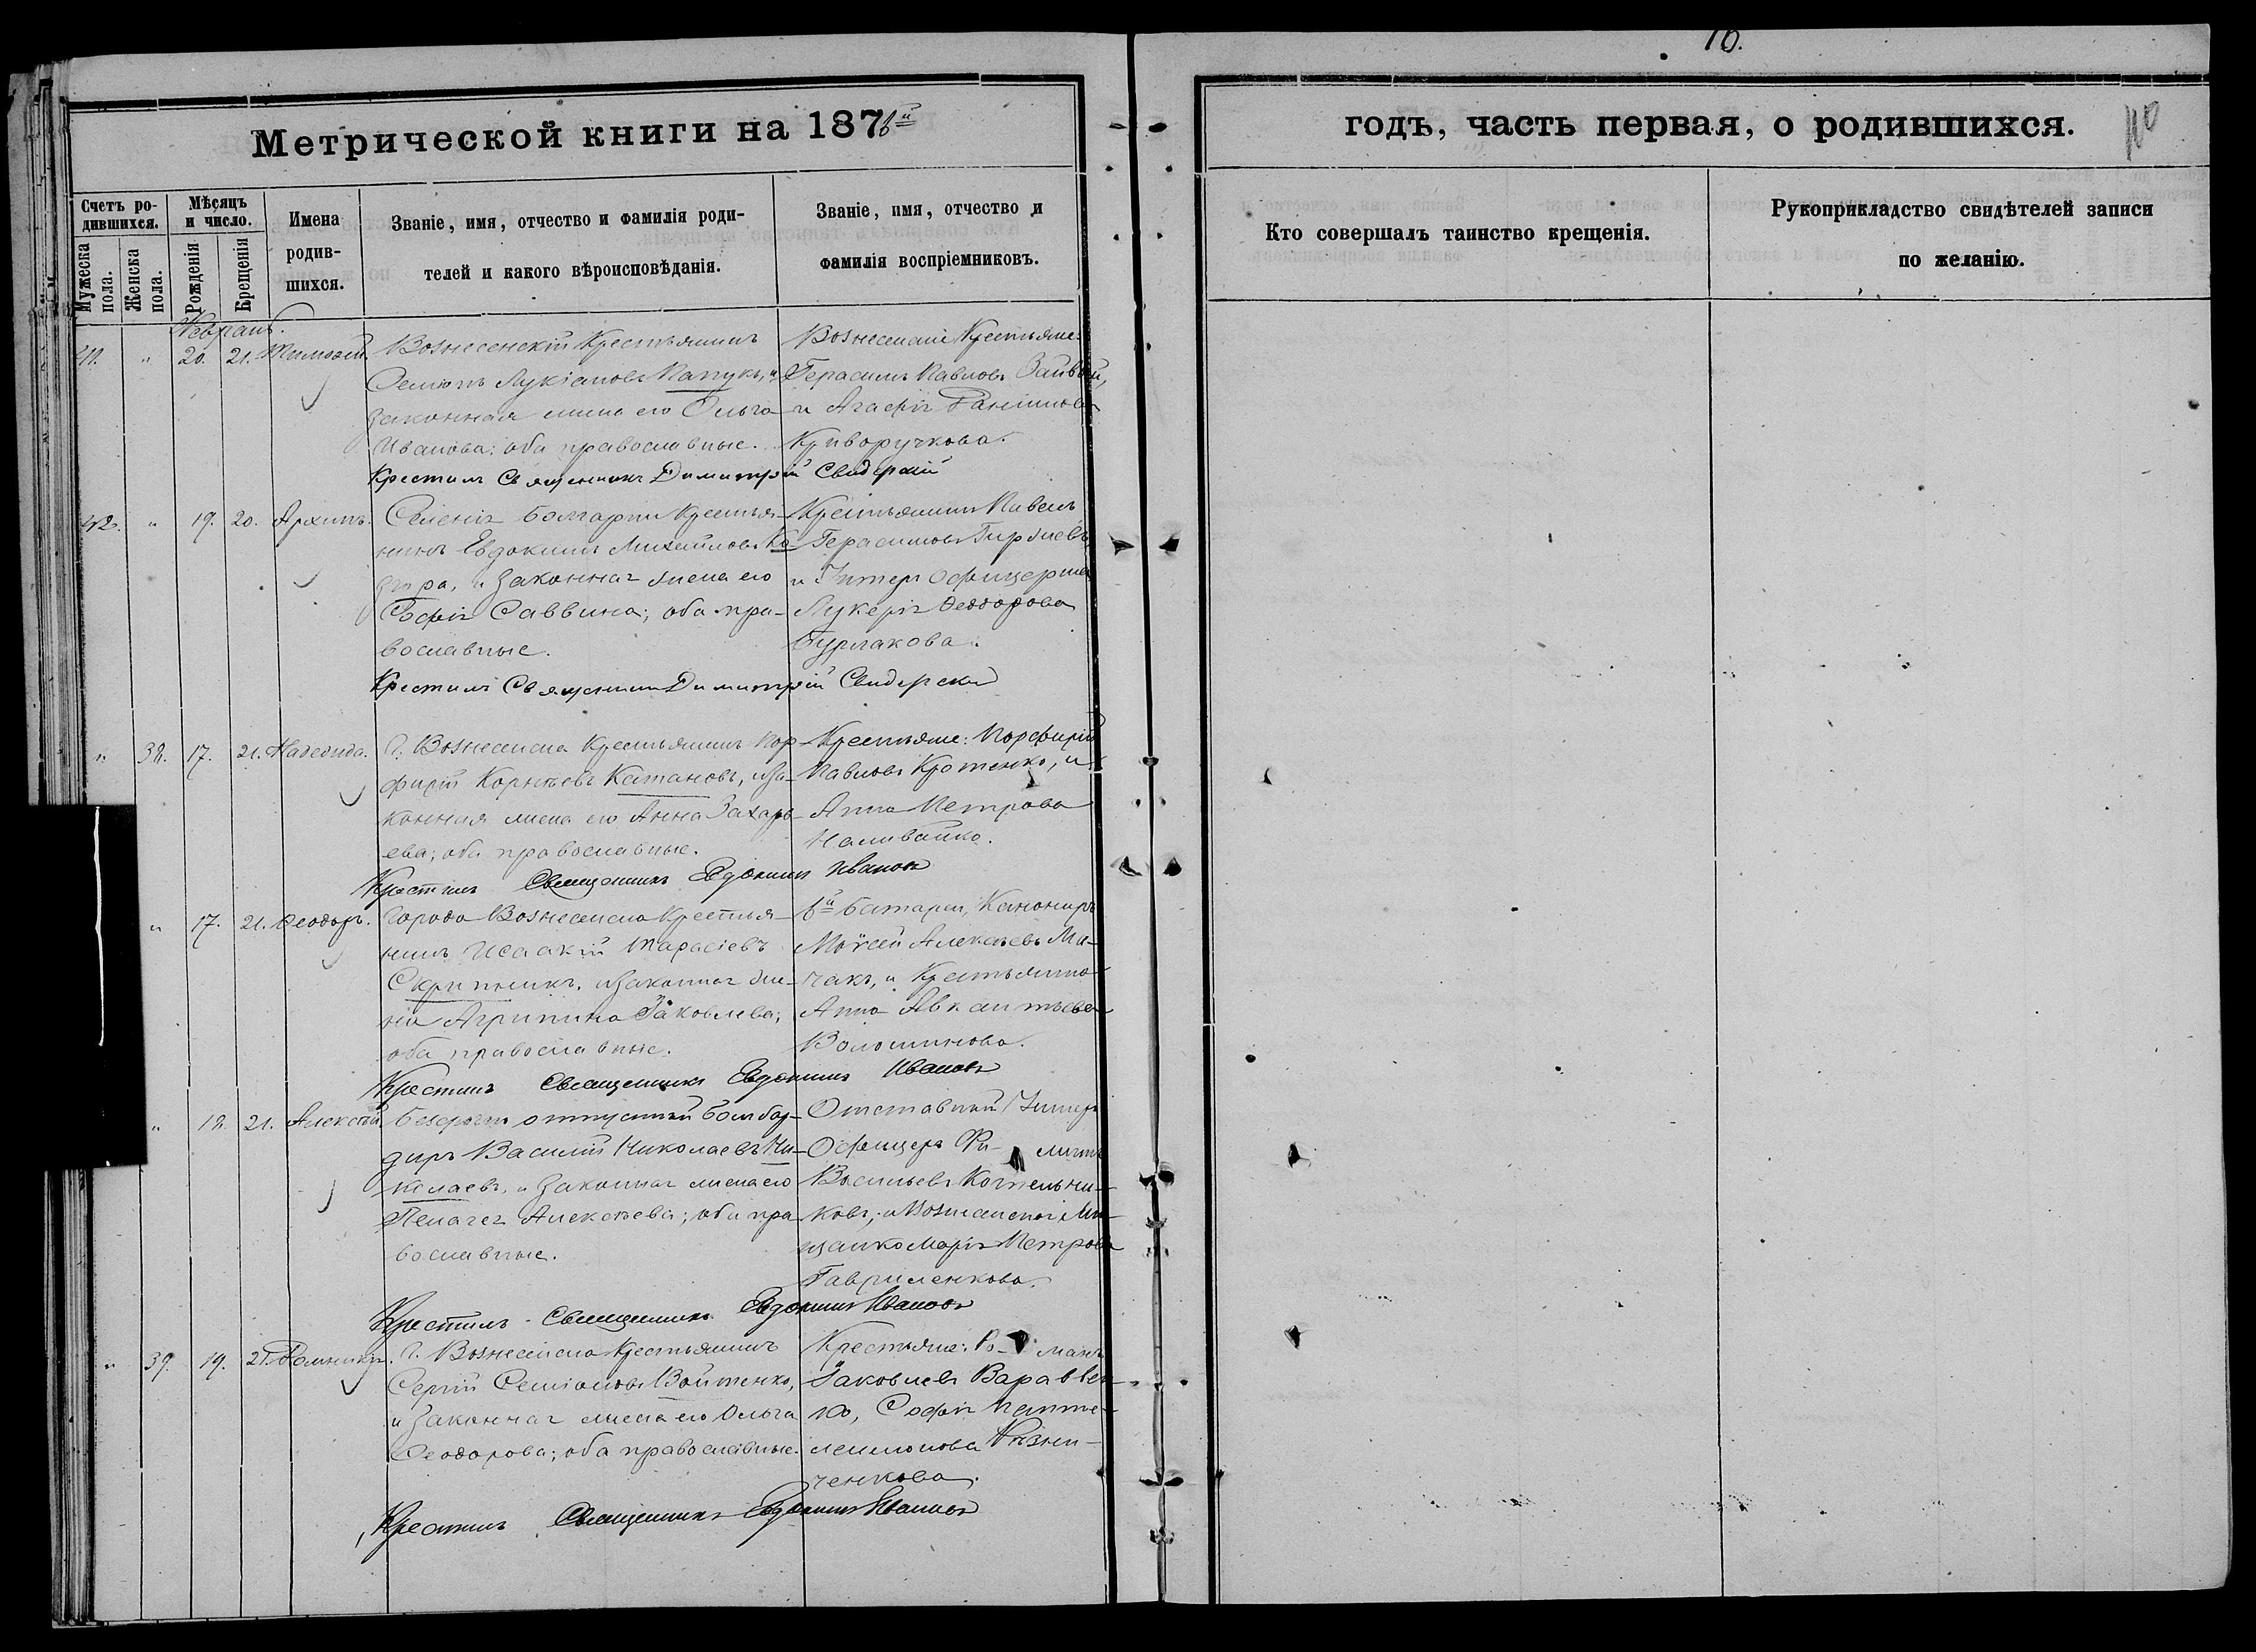 10.
Метрической книги на 1876й
годъ, часть первая, о родившихся.
Счетъ ро-
дившихся.
Мужеска
пола.
Женска
пола.
Мѣсяцъ
и число.
Рожденія
Крещенія
Имена
родив-
шихся.
Званіе, имя, отчество и фамилія роди-
телей и какого вѣроисповѣданія.
Званіе, имя, отчество и
фамилія воспріемниковъ.
Кто совершалъ таинство крещенія.
Рукоприкладство свидѣтелей записи
по желанію.
" 20. 21. Тимоѳей
Вознесенскій Крестьянинъ
Семіонъ Лукіановъ Папукъ, и
законная жена его Ольга
Иванова; оба православные.
Вознесенскіе Крестьяне:
Герасимъ Павловъ
и Агафія
Криворучкова.
Крестилъ Священникъ Димитрій Свидерскій
42. " 19. 20. Архипъ.
Селенія Болгарки Крестья-
нинъ Евдокимъ Михайловъ Ко-
зыра, и законная жена его
Софія Саввина; оба пра-
вославные.
Крестьянинъ Павелъ
Герасимовъ
и Унтеръ Офицерша
Лукерія Ѳеодорова
Бурлакова.
Крестилъ Священникъ Димитрій Свидерскій
" 38. 17. 21. Надежда.
г. Вознесенска Крестьянинъ Пор-
фирій Корнѣевъ Катановъ, и за-
конная жена его Анна Захарь-
ева; оба православные.
Крестьяне: Порфирій
Павловъ Кротенко, и
Анна Петрова
Наливайко.
Крестилъ Священникъ Евдокимъ Ивановъ
" 17. 21. Ѳеодоръ.
Города Вознесенска Крестья-
нинъ Исаакій Тарасіевъ
Скрипникъ, и законная же-
на Агрипина Яковлева;
оба православные.
6й батареи, Канониръ
Моѵсей Алексѣевъ Ма-
чакъ, и Крестьянка
Анна Авксентьева
Волошинова.
Крестилъ Священникъ Евдокимъ Ивановъ
" 18. 21. Алексѣй
Безсрочно отпускной Бомбар-
диръ Василій Николаевъ Ни-
колаевъ, и законная жена его
Пелагея Алексѣева; оба пра-
вославные.
Отставной Унтеръ
Офицеръ Фи- липпъ
Васильевъ Котельни-
ковъ, и Вознесенская Мѣ-
щанка Марія Петрова
Гавриленкова.
Крестилъ Священникъ Евдокимъ Ивановъ
" 39. 19. 21. Домникія.
г. Вознесенска Крестьянинъ
Сергій Семіоновъ Войтенко,
и законная жена его Ольга
Ѳеодорова; оба православные.
Крестьяне: Ро- манъ
Яковлевъ Вараввен-
ко, Софія Панте-
леимонова
ченкова.
Крестилъ Священникъ Евдокимъ Ивановъ